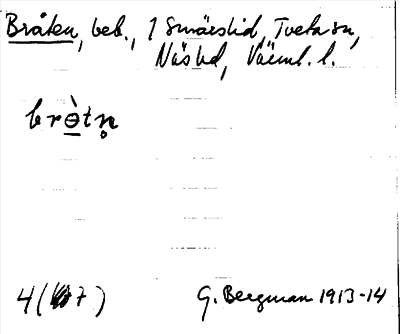 Bråten, beb., 1 Smärstid, Tveta sn,
Näs hd, Värml. l.
brɵ̀tn̥
4( 7)
G. Bergman 1913-14